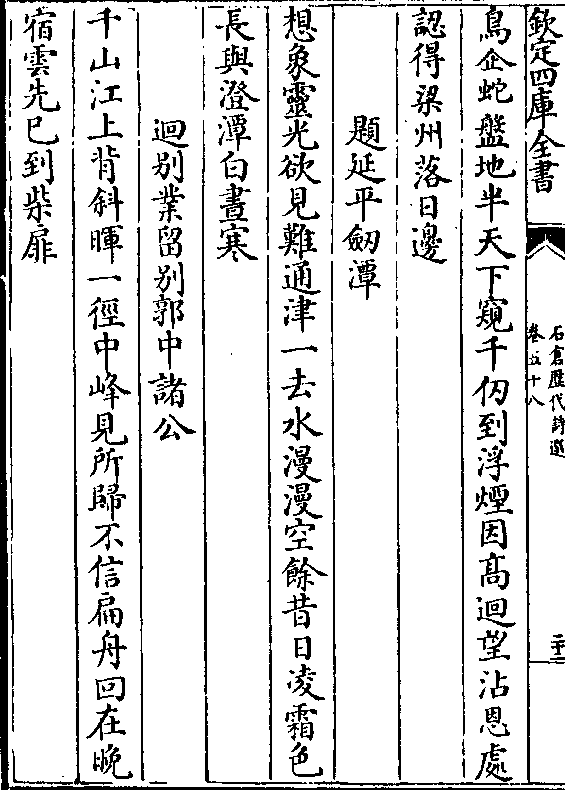 欽定四庫全書
石倉歴代詩選
卷五十八
二十三
鳥企蛇盤地半天下窺千仞到浮煙因髙迴望沾恩處
認得梁州落日邊
題延平劒潭
想象靈光欲見難通津一去水漫漫空餘昔日凌霜色
長與澄潭白晝寒
迴别業留别郭中諸公
千山江上背斜暉一徑中峰見所歸不信扁舟回在晩
宿雲先已到柴扉